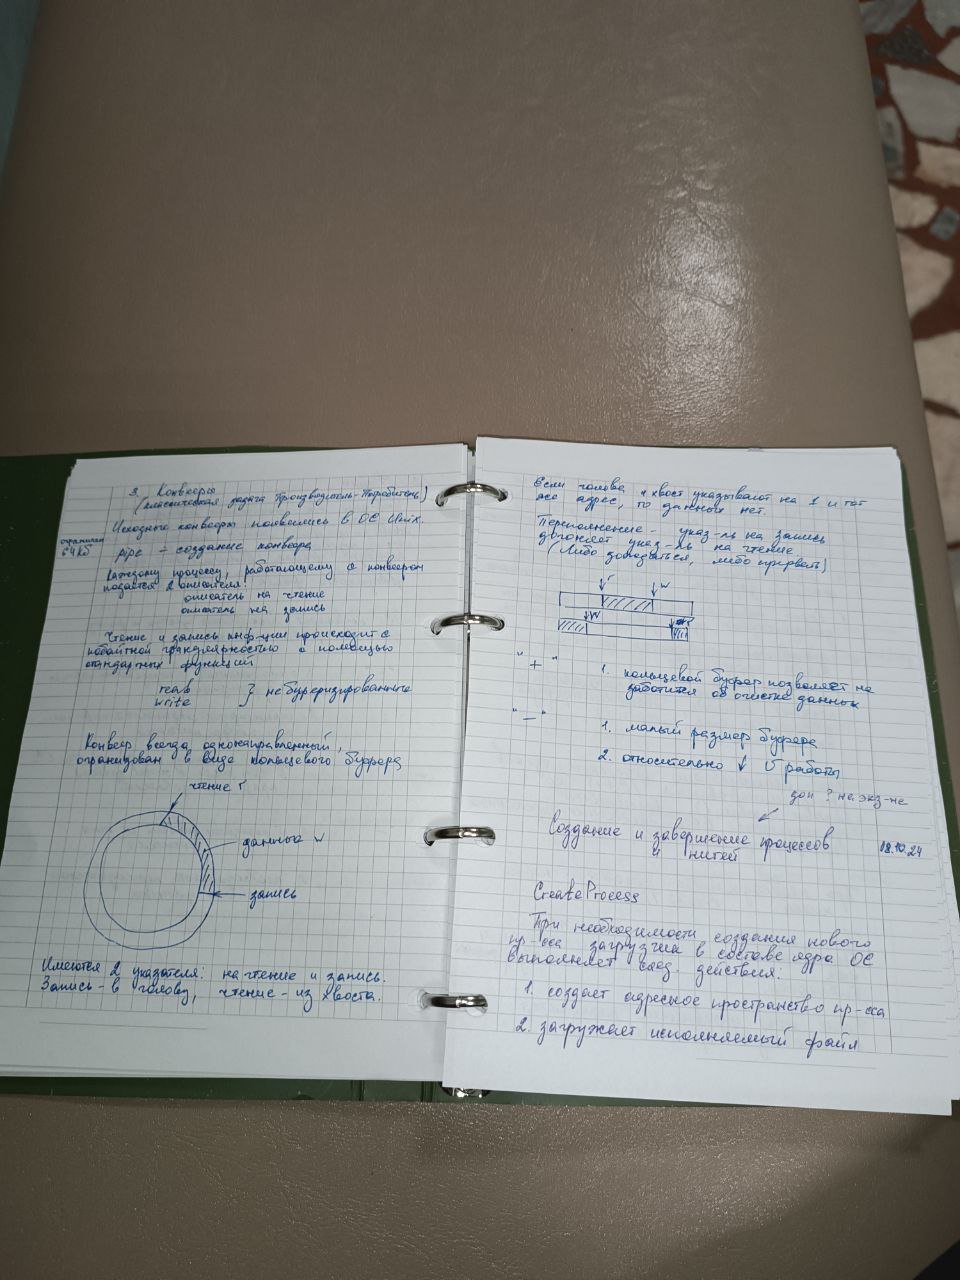 3. Конвееры
(классическая задача Производитель-Потребитель)
Исходные конвееры появились в ОС Unix.
ограничен
64Кб
pipe - создание конвеера
Каждому процессу, работающему с конвеером
подаётся 2 описателя:
описатель на чтение
описатель на запись
Чтение и запись инф-ции происходит с
побайтной гранулярностью с помощью
стандартных функций
read
write } небуферизированные
Конвеер всегда однонаправленный,
огранизован в виде кольцевого буфера
чтение r
данные w
запись
Имеются 2 указателя: на чтение и запись.
Запись - в голову, чтение - из хвоста.
Если голова и хвост указывают на 1 и тот
же адрес, то данных нет.
Переполнение - указ-ль на запись
догоняет указ-ль на чтение
(либо дождаться, либо прервать)
r w
w r
"+"
1. кольцевой буфер позволяет не
заботится об очистке данных
"—"
1. малый размер буфера
2. относительно ↓ υ работы
доп ? на экз-не
Создание и завершение процессов
и нитей
18.10.24
CreateProcess
При необходимости создания нового
пр-сса загрузчик в составе ядра ОС
выполняет след. действия:
1. создаёт адресное пространство пр-сса
2. загружает исполняемый файл